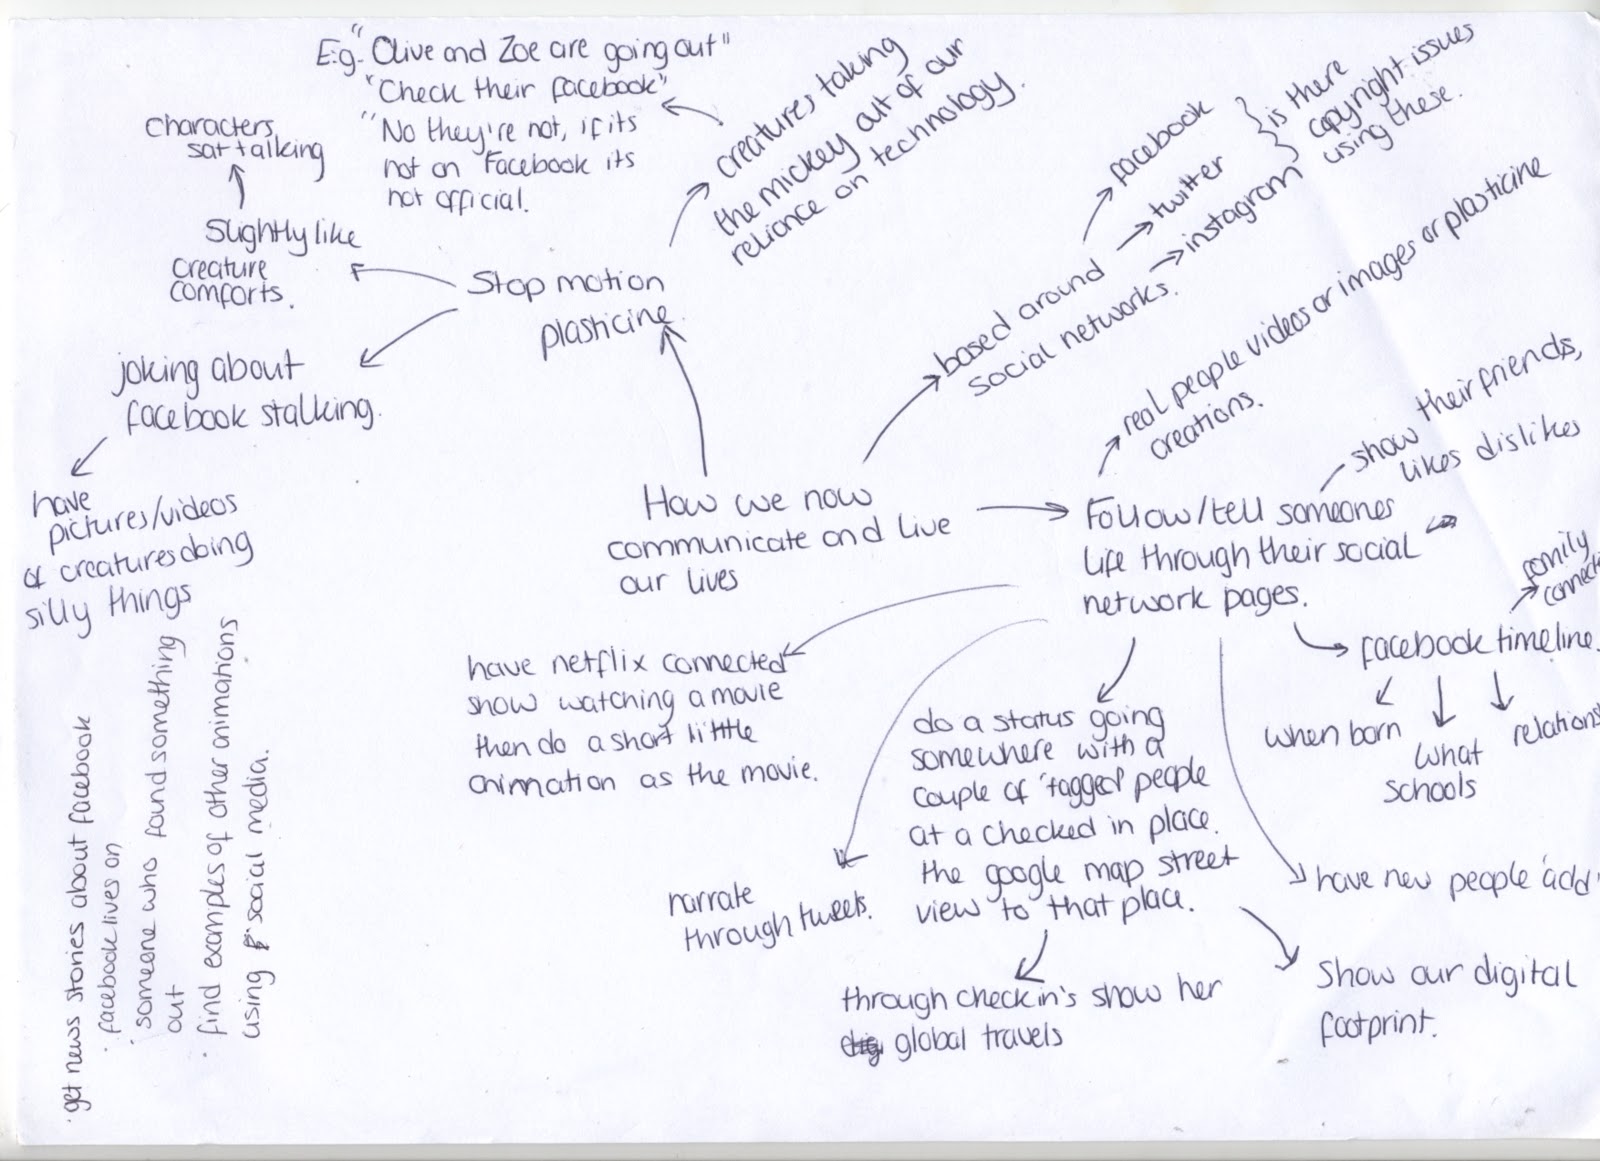 E.g. "Olive and Zoe are going out"
"Check their facebook"
"No they're not, if its
not on Facebook its
not official.
creatures taking
the mickey out of our
reliance on technology.
characters
sat talking
Slightly like
creature
comforts.
Stop motion
plasticine
joking about
facebook stalking.
have
pictures/videos
of creatures doing
silly things
facebook
twitter
instagram
is there
copyright issues
using these.
based around
social networks.
real people videos or images or plasticine
creations.
show their friends,
likes dislikes
How we now
communicate and live
our lives
Follow/tell someones
life through their social
network pages.
family
connecti
facebook timeline.
when born
what
schools
relations
have netflix connected
show watching a movie
then do a short little
animation as the movie.
narrate
through tweets.
do a status going
somewhere with a
couple of 'tagged' people
at a checked in place.
the google map street
view to that place.
through checkin's show her
global travels
have new people 'add'
Show our digital
footprint.
· get news stories about facebook
· facebook lives on
· someone who found something
out
· find examples of other animations
using social media.